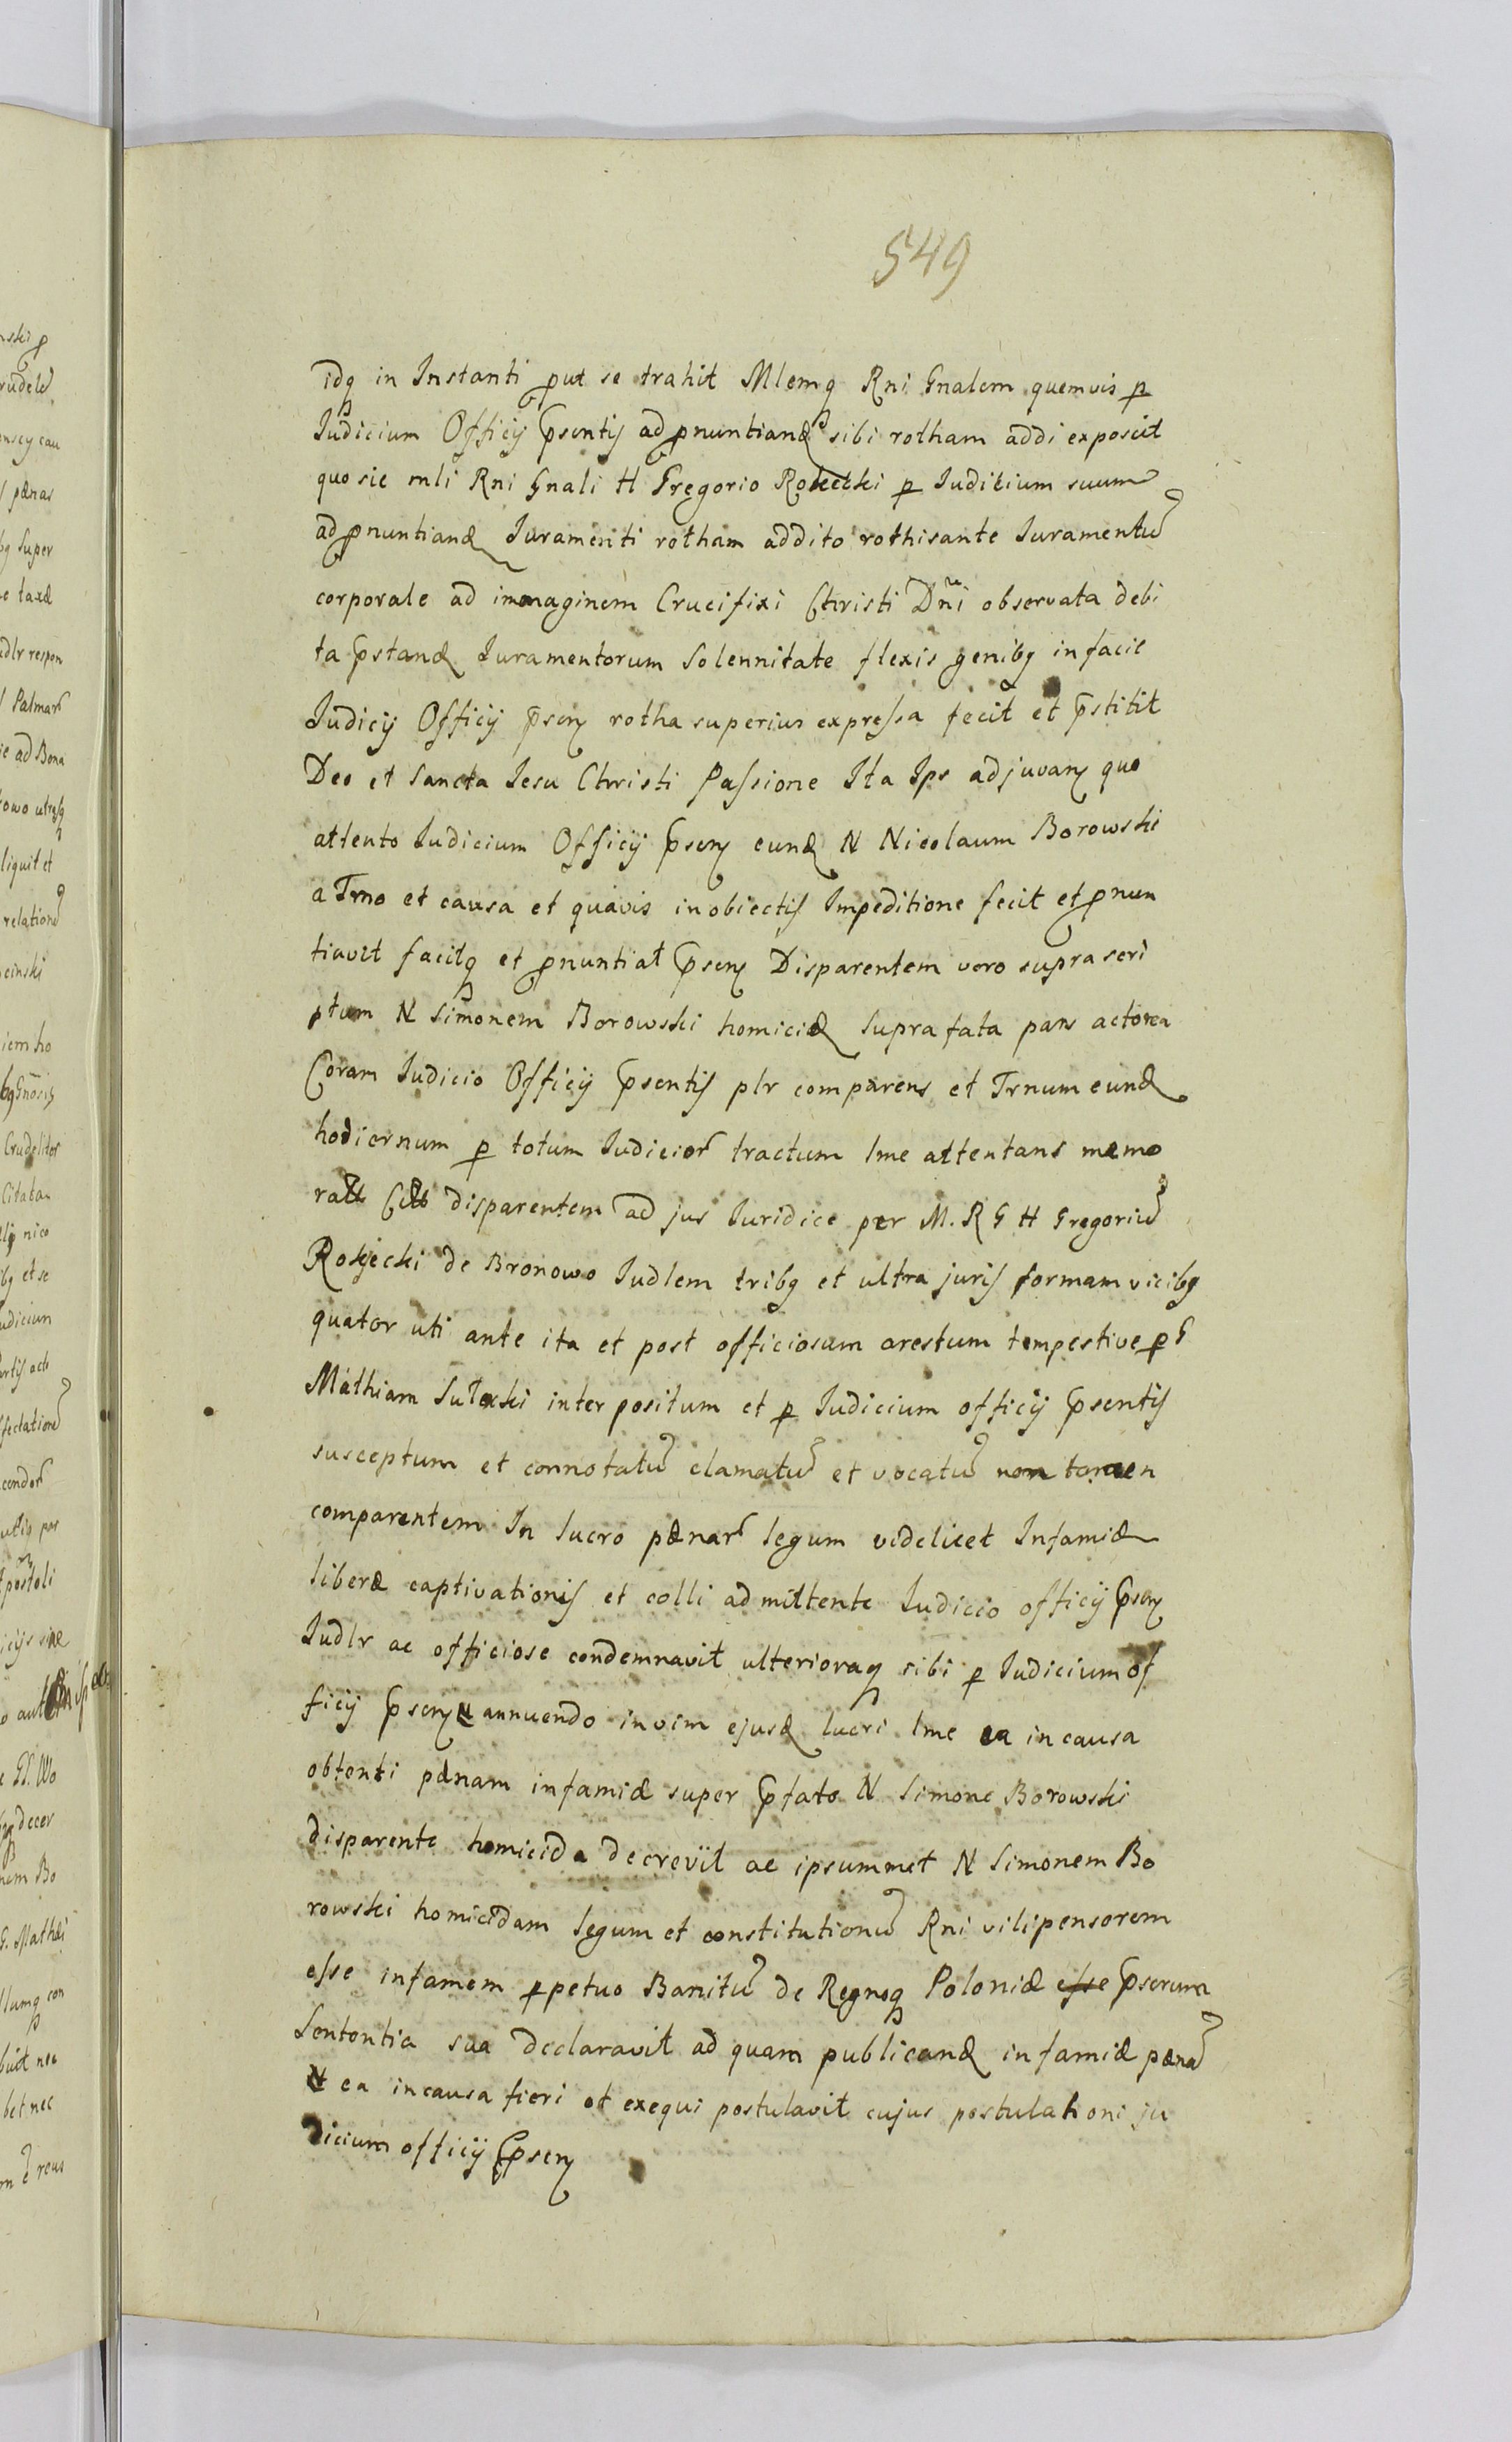 549
idq in Instanti put se trahit Mlemq Rni Gnalem quemvis p
Iudicium Officij psentis ad pnuntiand sibi rotham addi exposcit
quo sic mli Rni Gnali H Gregorio Rokicki p Iuditium suum
ad pnuntiand Iuramenti rotham addito rothisante Iuramentu
corporale ad immaginem Crucifixi Christi Dni observata debi
ta pstand Iuramentorum Solennitate flexis genibq in facie
Iudicij Officij psen rotha superius expressa fecit et pstitit
Deo et Sancta Iesu Christi Passione Ita Ips adjuvan quo
attento Iudicium Officij psen eund N Nicolaum Borowski
a Trno et causa et quavis in obiectis Impeditione fecit et pnun
tiavit facitq et pnuntiat psen Disparentem vero supra scri
ptum N Simonem Borowski homicid supra fata pars actorea
Coram Iudicio Officij psentis plr comparens et Trnum eund
hodiernum p totum Iudicior tractum lme attentans memo
disparentem ad jus Iuridice per M. R G H Gregoriu
Rokicki de Bronowo Iudlem tribq et ultra juris formam vicibq
quator uti ante ita et post officiosum arestum tempestive p G
Mathiam interpositum et p Iudicium officij psentis
susceptum et connotatu clamatu et vocatu non tamen
comparentem In lucro pænar legum videlicet Infamiæ
liberæ captivationis et colli admittente Iudicio officij psen
Iudlr ac officiose condemnavit ulterioraq sibi p Iudicium of
ficij psen annuendo in vim ejusd lucri lme ea in causa
obtenti pænam infamiæ super pfato N Simone Borowski
disparente homicida decrevit ac ipsummet N Simonem Bo
rowski homicidam legum et constitutionu Rni vilipensorem
esse infamem ppetuo Banitu de Regnoq Poloniæ esse pserum
Sententia sua declaravit ad quam publicand infamiæ pæna
N ea in causa fieri et exequi postulavit cujus postulationi ju
dicium officij psen